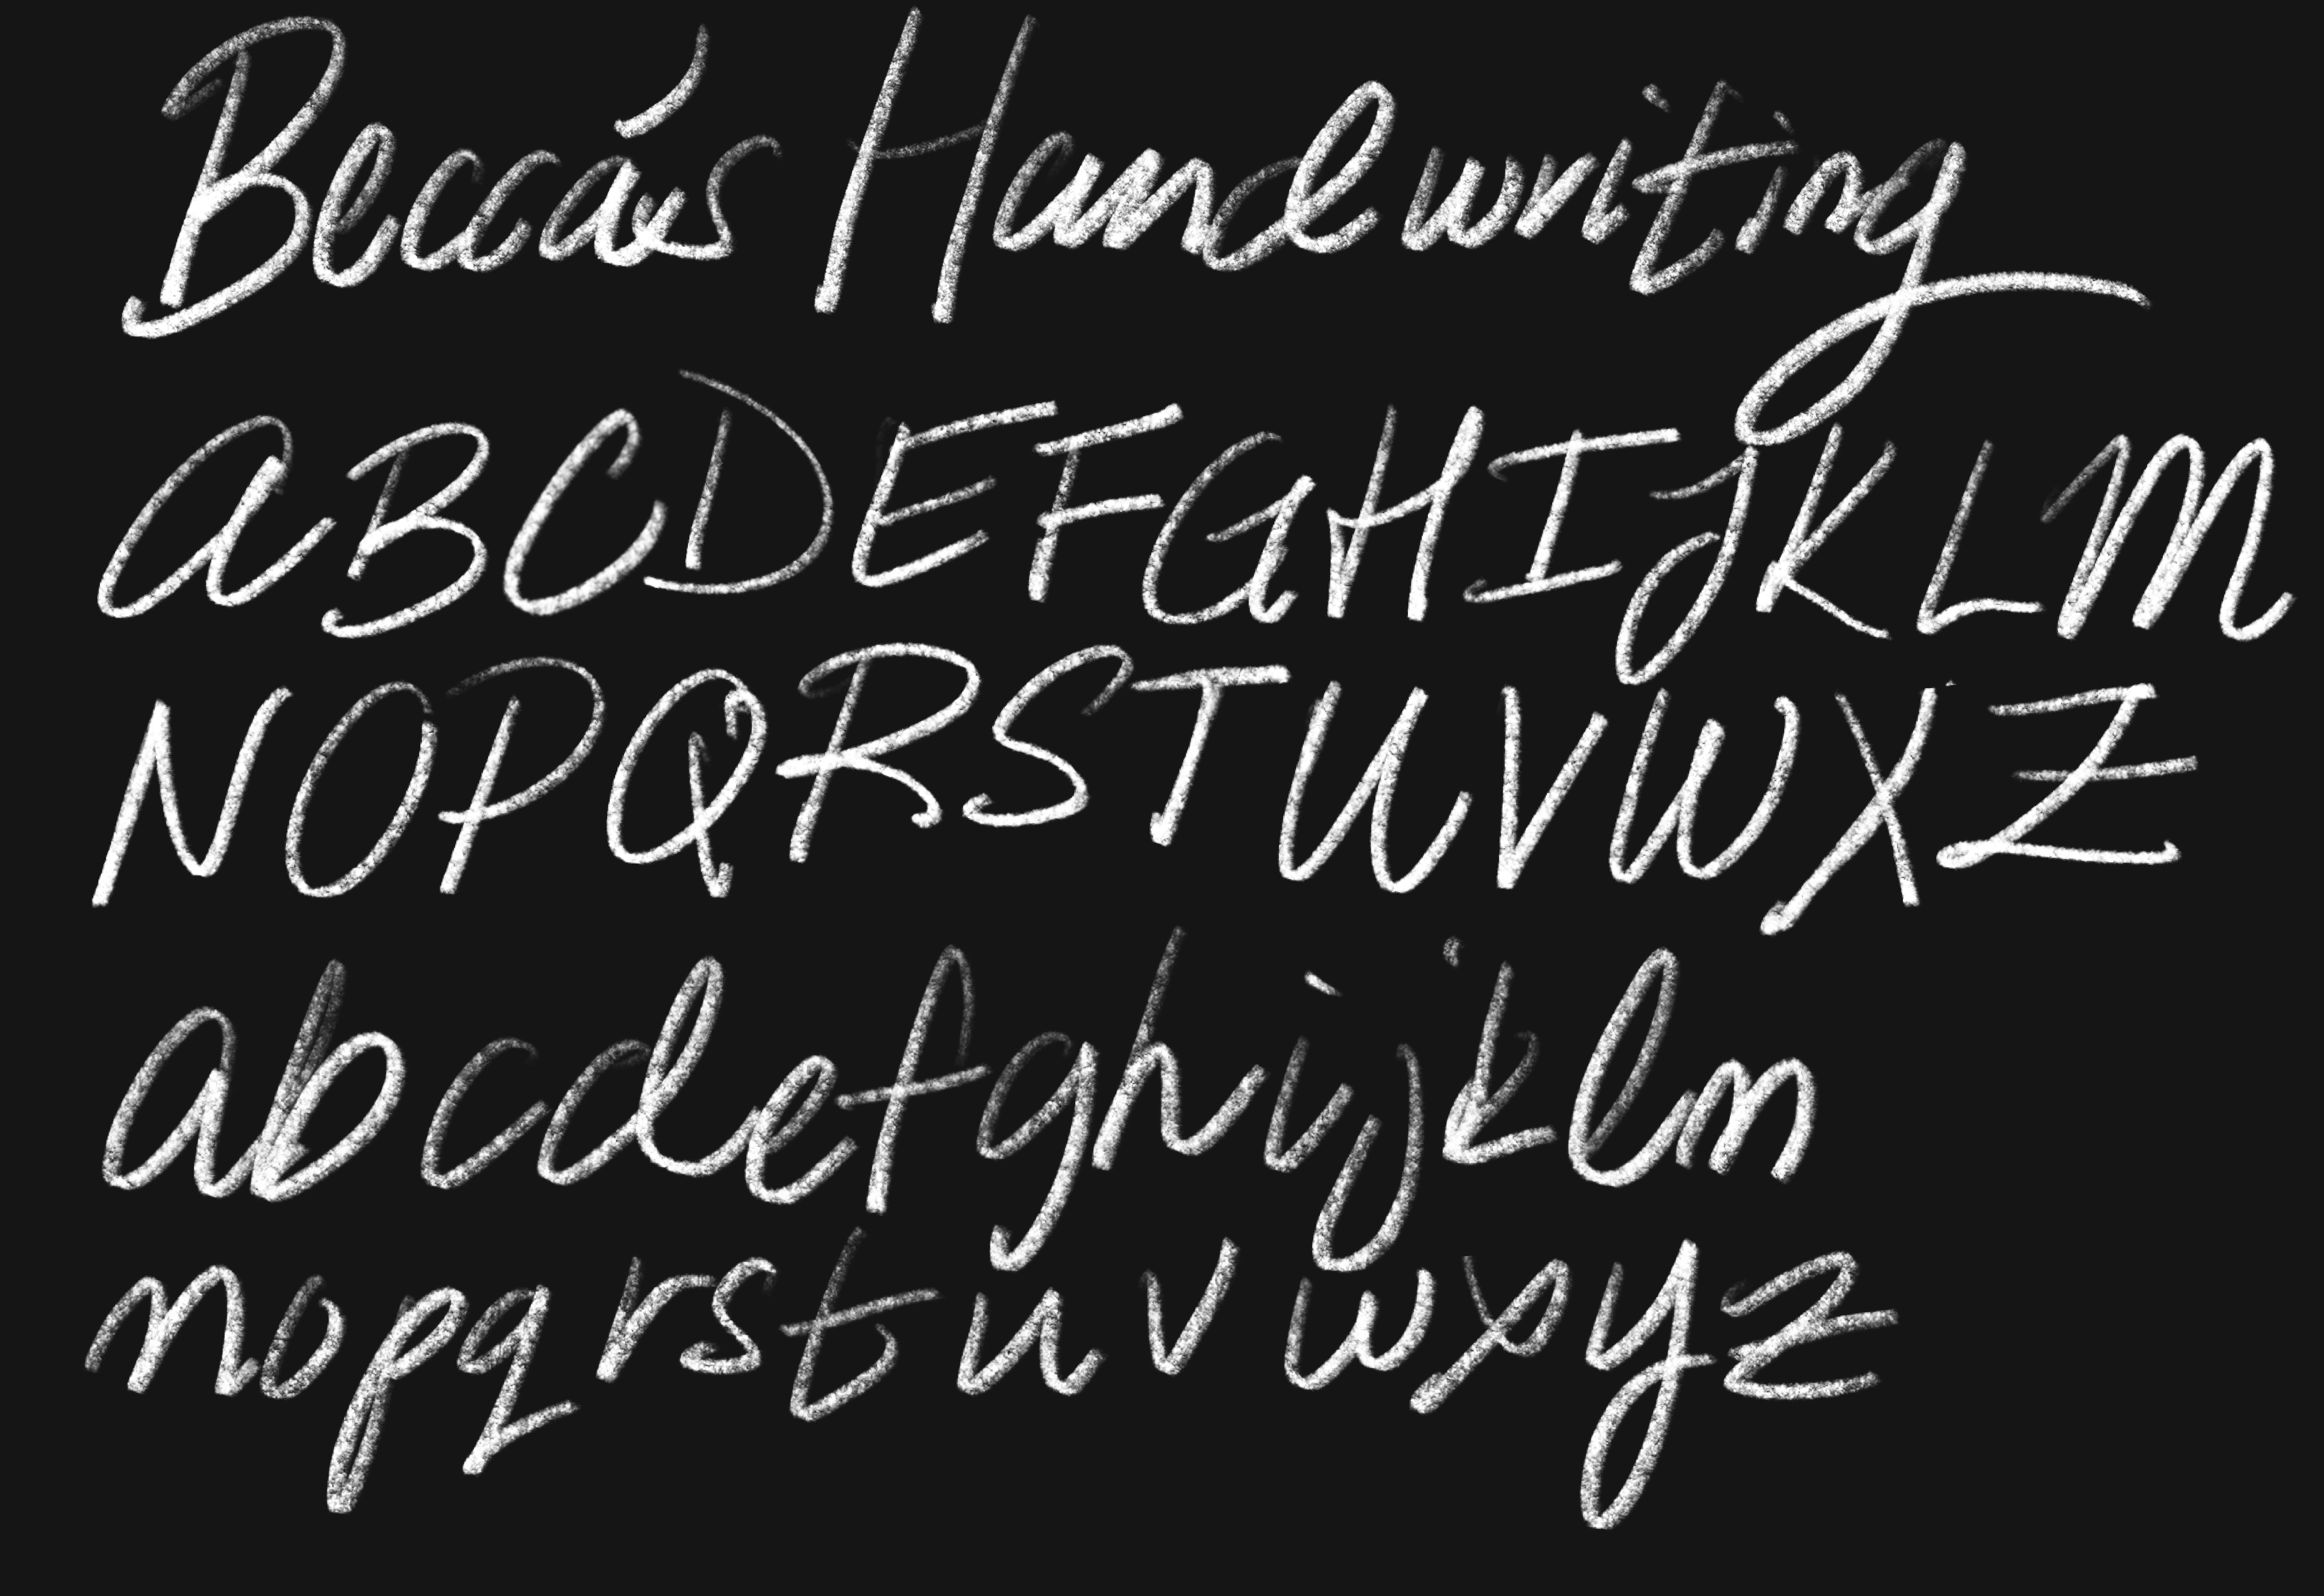 Becca's Handwriting
ABCDEFGHIJKLM
NOPQRSTUVWXZ
abcdefghijklm
nopqrstuvwxyz